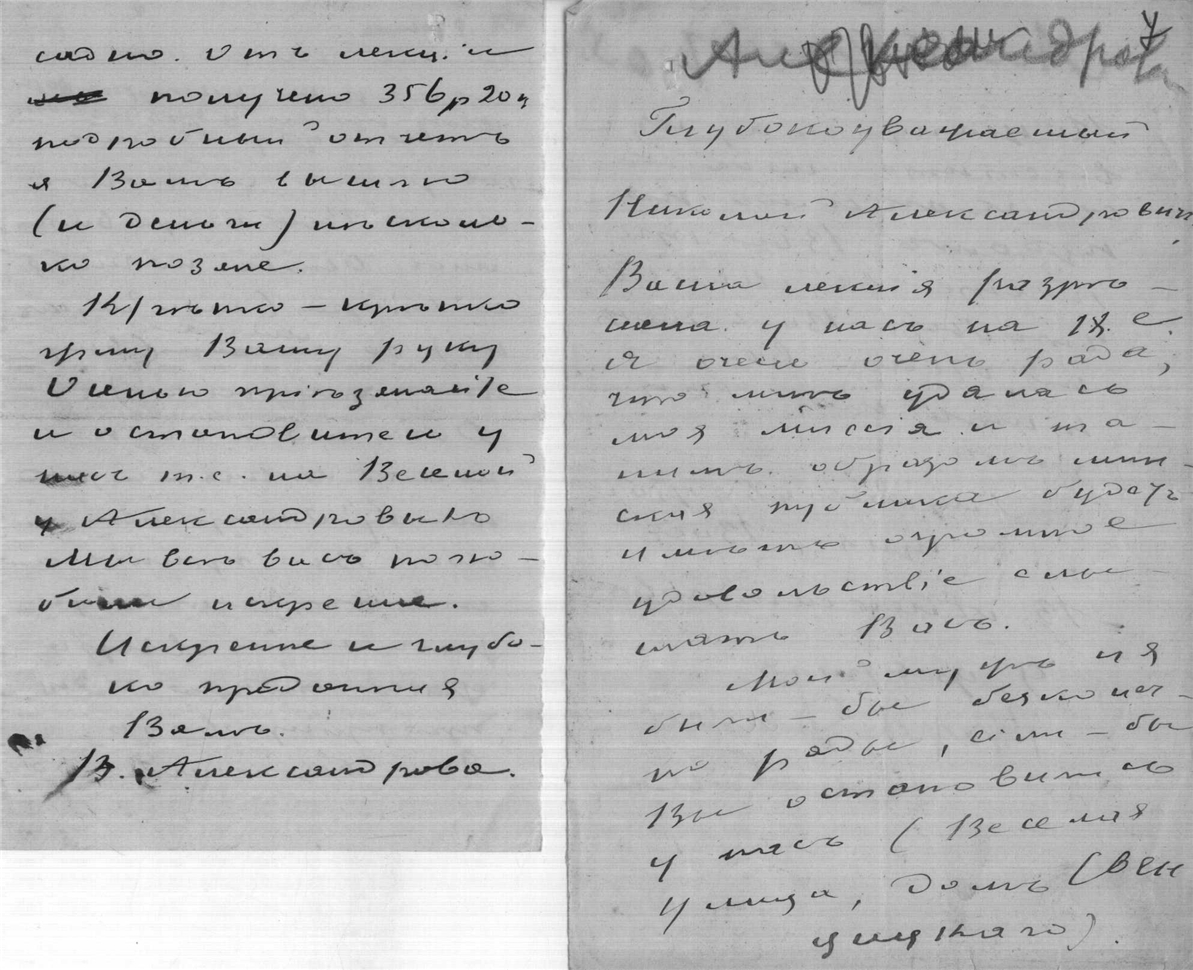 садно. Отъ лекціи
получено 356р 20к
подробный отчетъ
я Вамъ вышлю
(и деньги) нѣсколь-
ко позже.
Крѣпко-крѣпко
жму Вашу руку
Осенью пріезжайте
и остановитесь у
насъ т.е. на Веселой
у Александровыхъ
Мы всѣ васъ полю-
били искренне.
Искренне и глубо-
ко преданная
Вамъ.
В. Александрова.
Александрова
Глубокоуважаемый
Николай Александровичъ.
Ваша лекція разрѣ-
шена у насъ на 18.е.
Я очень очень рада,
что мнѣ удалась
моя миссія и та-
кимъ образомъ мин-
ская публика будетъ
имѣть огромное
удовольствіе слы-
шать Васъ.
Мой мужъ и я
были-бы безконеч-
но рады, если-бы
Вы остановились
у насъ (Веселая
улица, домъ Свен
цицкаго).